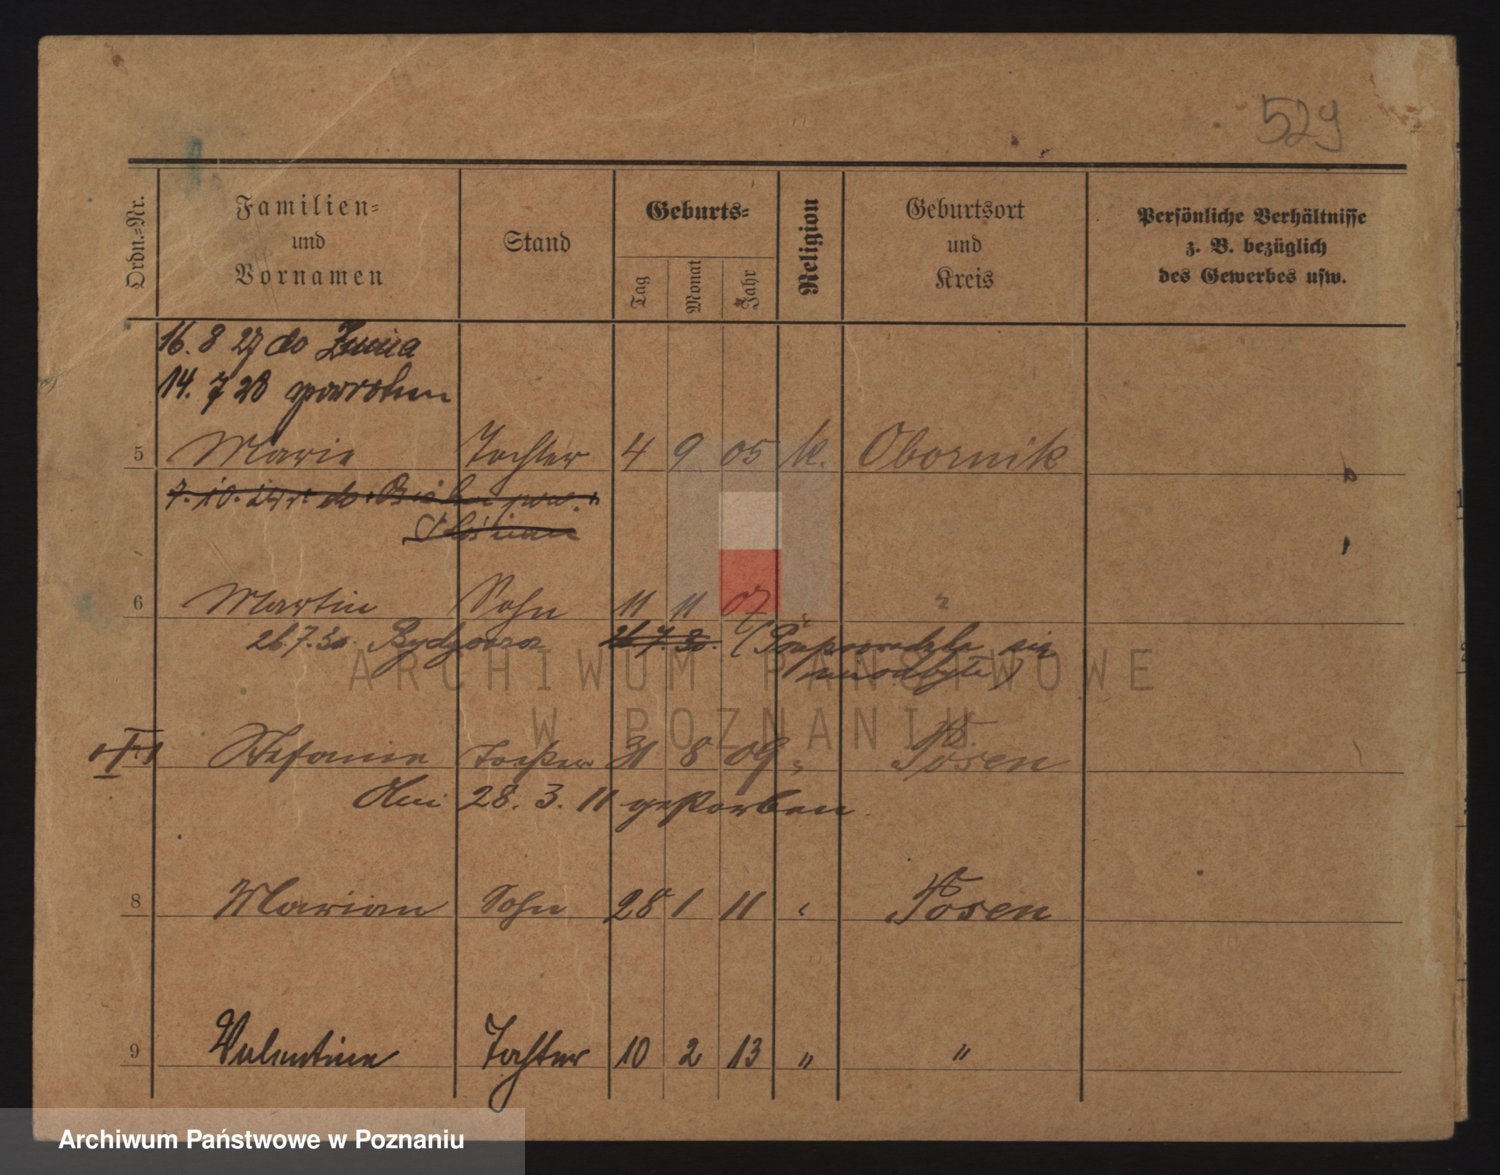 529
Ordn.-Nr.
Familien-
und
Vornamen
Stand
Geburts-
Tag
Monat
Jahr
Religion
Geburtsort
und
Kreis
Persönliche Verhältnisse
z. B. bezüglich
des Gewerbes usw.
16. 8 27 do Żnina
14. 7 28 powrotem
5 Marie Tochter 4 9 05 k. Obornik
7. 10. do
6 Martin Sohn 11 11 07 "
26.7.30. Bydgoszcz 26.7.30. (
Stefanie Tochter 31 8 09 " Posen
Am 28. 3. 11 gestorben
8 Marian Sohn 28 1 11 " Posen
9 Valentine Tochter 10 2 13 " "
ARCHIWUM PAŃSTWOWE
W POZNANIU
Archiwum Państwowe w Poznaniu